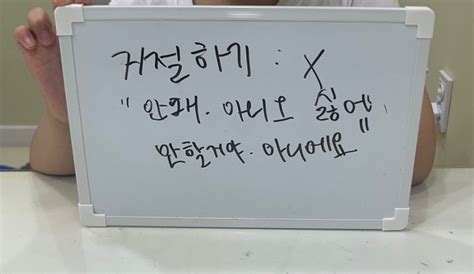 거절하기 : X
"안돼. 아니오 싫어
안할거야. 아니에요"